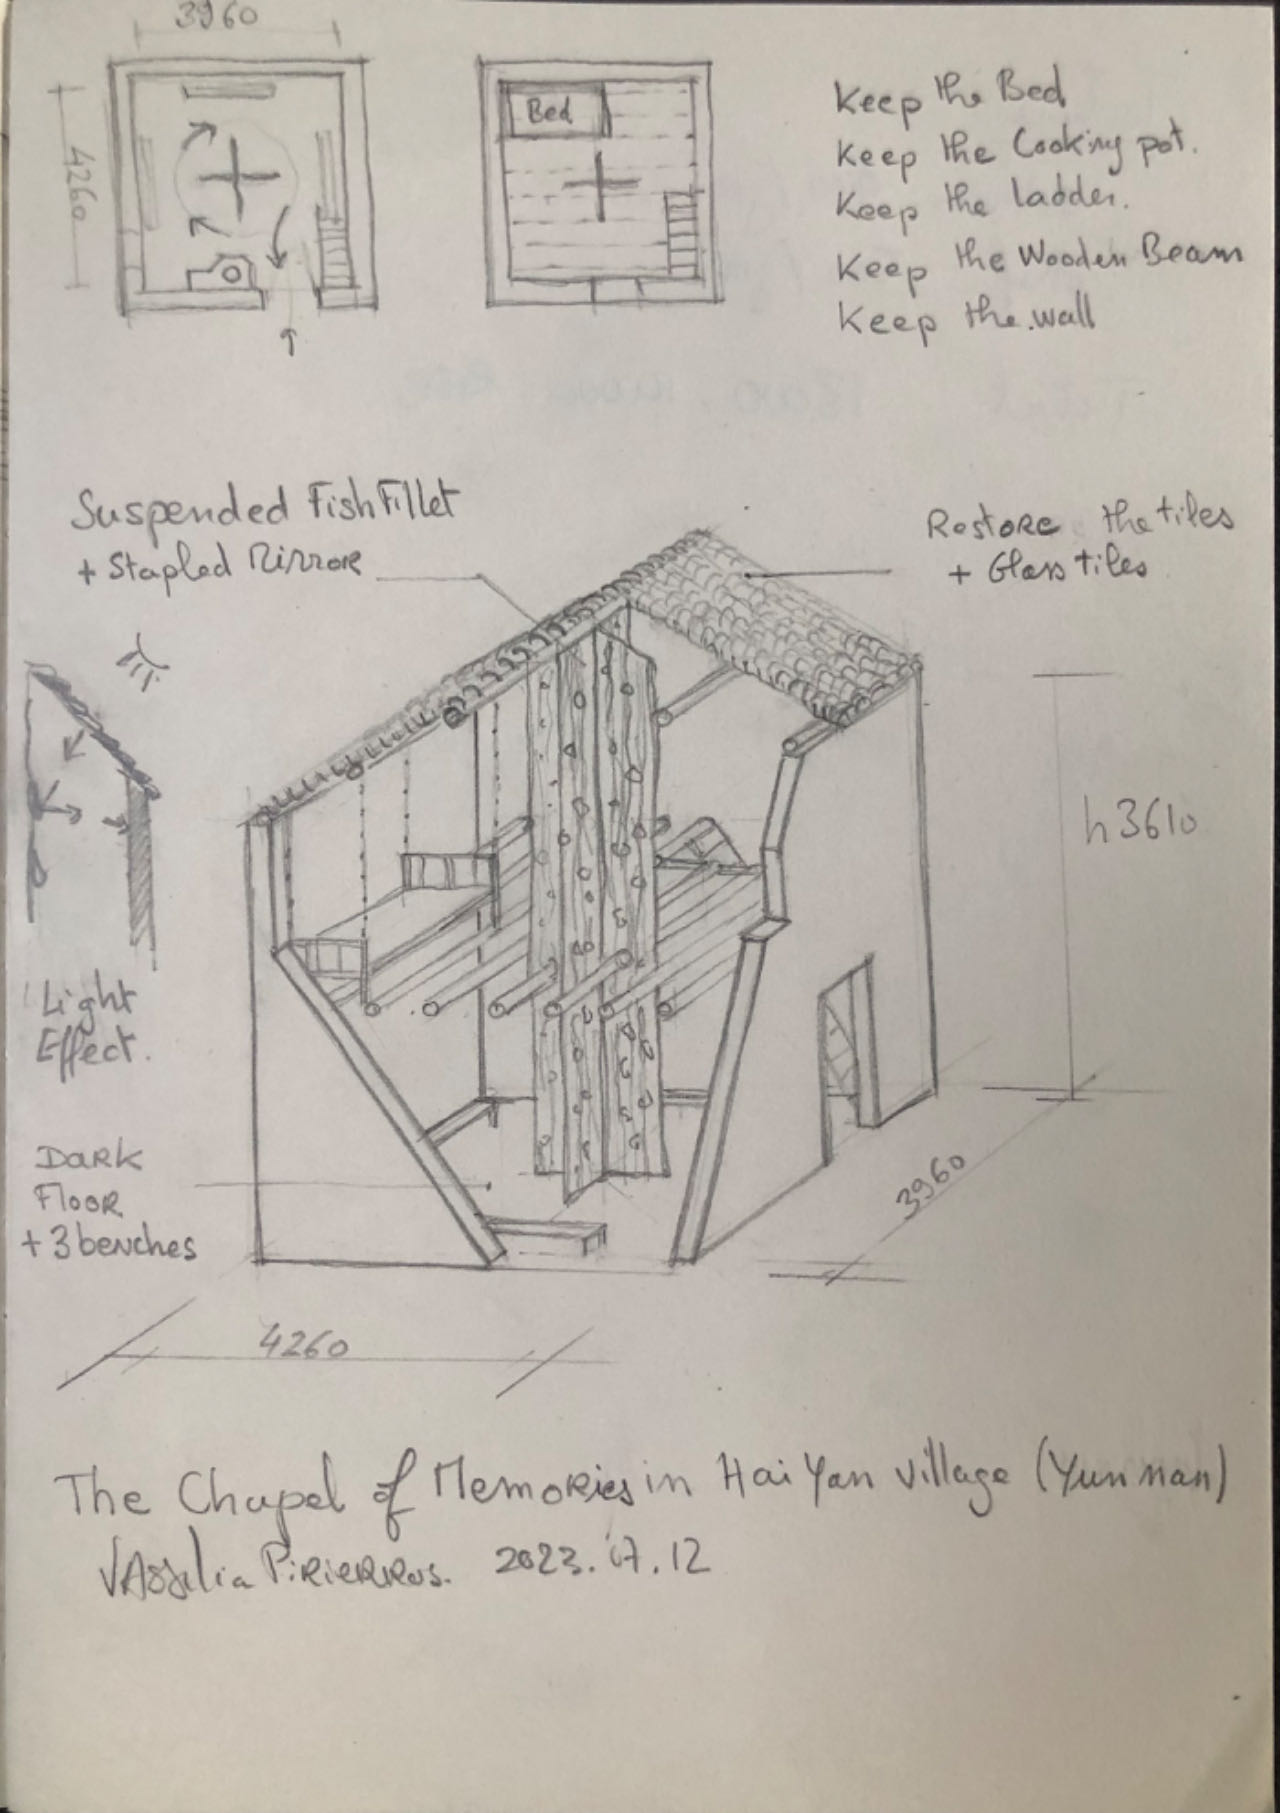 3960
4260
Bed
Keep the Bed
Keep the Cooking pot.
Keep the ladder.
Keep the Wooden Beam
Keep the wall
Suspended Fish Fillet
+ Stapled Mirror
Restore the tiles
+ Glass tiles
h3610
Light
Effect.
Dark
Floor
+ 3 benches
3960
4260
The Chapel of Memories in Hai Yan village (Yunnan)
2023.07.12